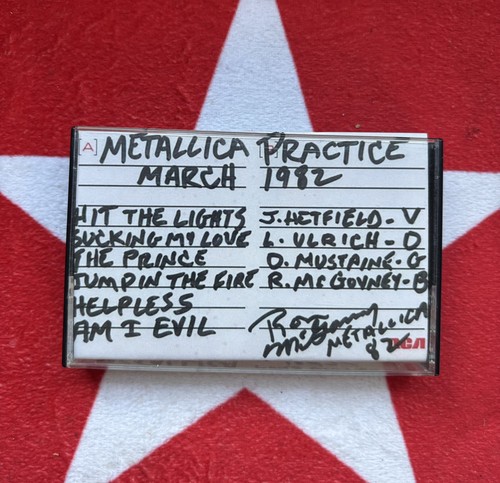 [A] METALLICA PRACTICE
MARCH 1982
HIT THE LIGHTS J. HETFIELD - V
SUCKING MY LOVE L. ULRICH - D
THE PRINCE D. MUSTAINE - G
JUMP IN THE FIRE R. McGOVNEY - B
HELPLESS
AM I EVIL
METALLICA
82
RCA